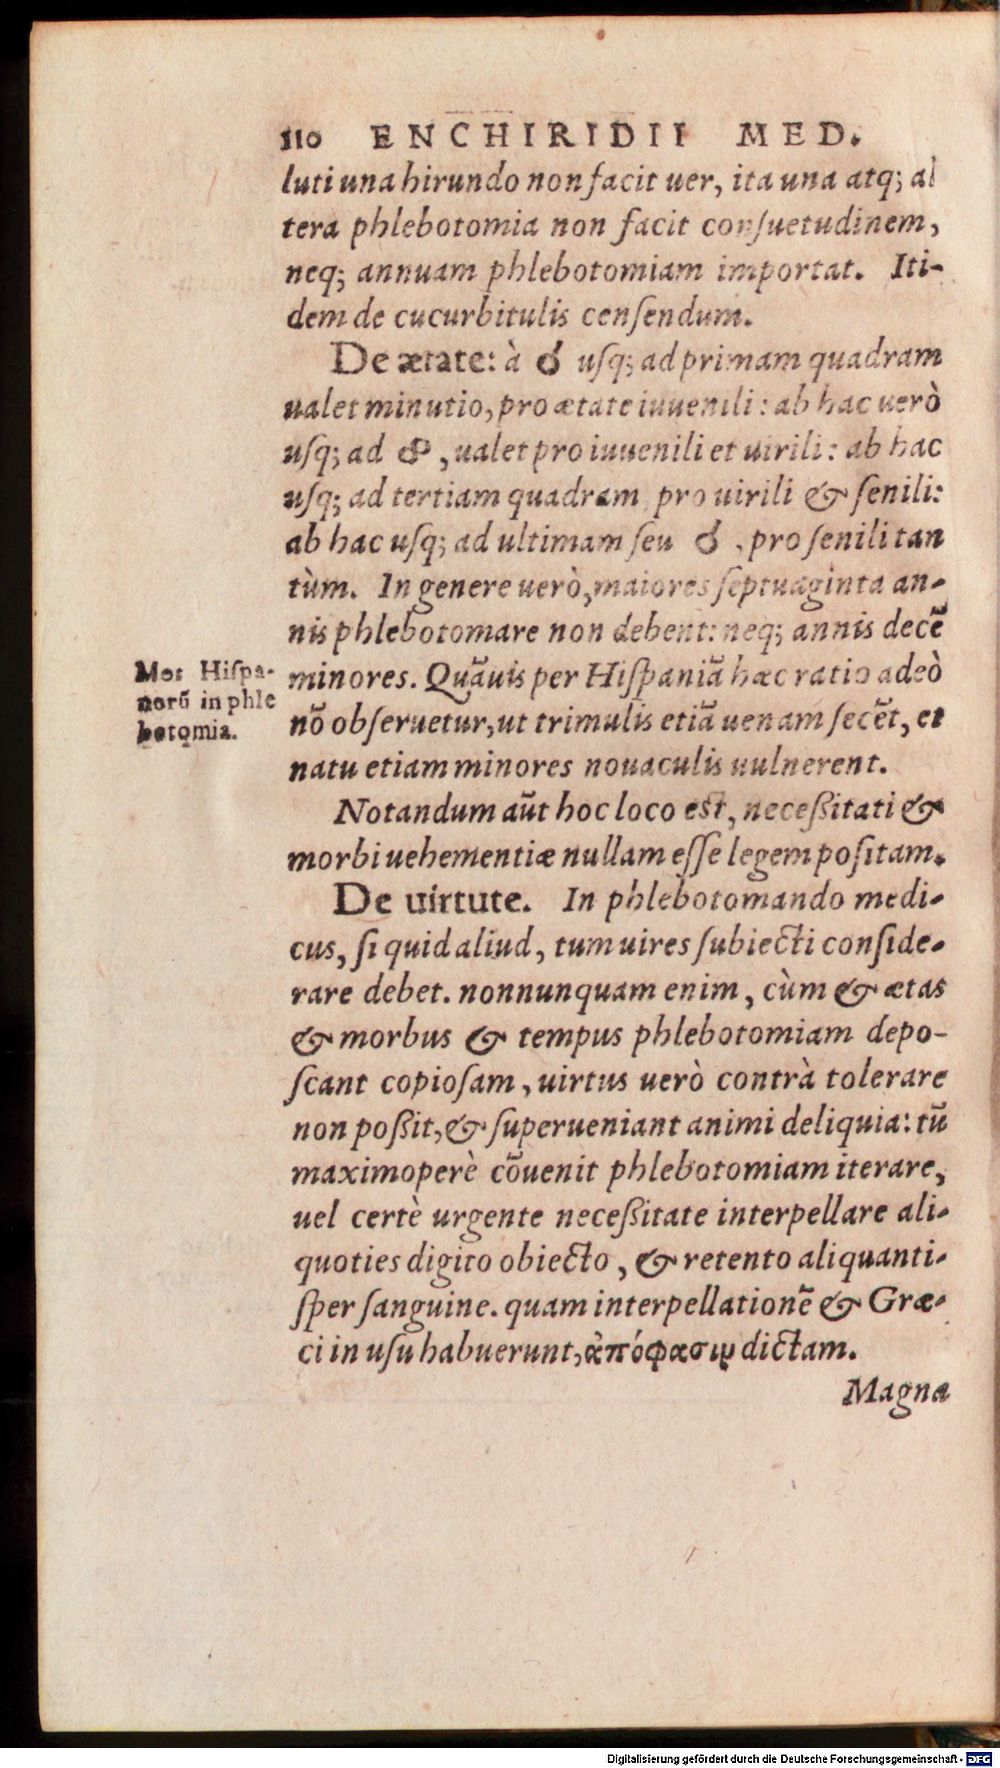 110 ENCHIRIDII MED.
luti una hirundo non facit uer, ita una atq; al
tera phlebotomia non facit conſuetudinem,
neq; annuam phlebotomiam importat. Iti-
dem de cucurbitulis cenſendum.
De ætate: à ☌ uſq; ad primam quadram
ualet minutio, pro ætate iuuenili: ab hac uerò
uſq; ad ☍, ualet pro iuuenili et uirili: ab hac
uſq; ad tertiam quadram pro uirili & ſenili:
ab hac uſq; ad ultimam ſeu ☌, pro ſenili tan
tùm. In genere uerò, maiores ſeptuaginta an-
nis phlebotomare non debent: neq; annis decẽ
minores. Quãuis per Hiſpaniã hæc ratio adeò
nõ obſeruetur, ut trimulis etiã uenam ſecẽt, et
natu etiam minores nouaculis uulnerent.
Mos Hiſpa-
norũ in phle
botomia.
Notandum aũt hoc loco eſt, neceßitati &
morbi uehementiæ nullam eſſe legem poſitam.
De uirtute. In phlebotomando medi-
cus, ſi quid aliud, tum uires ſubiecti conſide-
rare debet. nonnunquam enim, cùm & ætas
& morbus & tempus phlebotomiam depo-
ſcant copioſam, uirtus uerò contrà tolerare
non poßit, & ſuperueniant animi deliquia: tũ
maximoperè cõuenit phlebotomiam iterare,
uel certè urgente neceßitate interpellare ali-
quoties digito obiecto, & retento aliquanti-
ſper ſanguine. quam interpellationẽ & Græ-
ci in uſu habuerunt, ἀπόφασιν dictam.
Magna
Digitalisierung gefördert durch die Deutsche Forschungsgemeinschaft - DFG